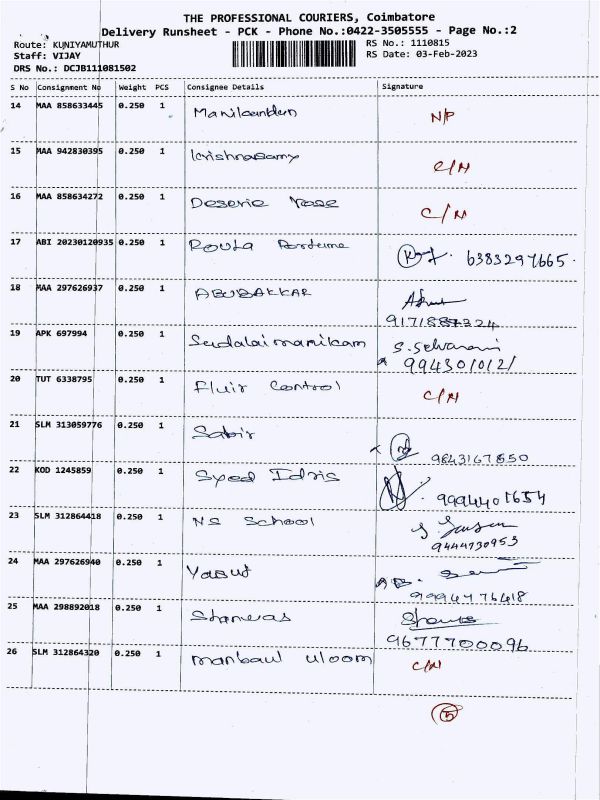 THE PROFESSIONAL COURIERS, Coimbatore
Delivery Runsheet - PCK - Phone No.:0422-3505555 - Page No.:2
Route: KUNIYAMUTHUR RS No.: 1110815
Staff: VIJAY RS Date: 03-Feb-2023
DRS No.: DCJB111081502
S No Consignment No Weight PCS Consignee Details Signature
14 MAA 858633445 0.250 1 Manikandan N/P
15 MAA 942830395 0.250 1 Krishnasamy C/N
16 MAA 858634272 0.250 1 Deserie Rose C/N
17 ABI 20230120935 0.250 1 6383297665.
18 MAA 297626937 0.250 1 ABUBAKKAR
9171887324
19 APK 697994 0.250 1 Sudalaimanikam S. Selvarani
9943010121
20 TUT 6338795 0.250 1 Fluir Control C/N
21 SLM 313059776 0.250 1 Sabir
9843167850
22 KOD 1245859 0.250 1 Syed Idris
9994401654
23 SLM 312864418 0.250 1 NS School
9444730953
24 MAA 297626940 0.250 1 Yasuf
9994776418
25 MAA 298892018 0.250 1
9677700096
26 SLM 312864320 0.250 1 manbaul uloom C/N
5